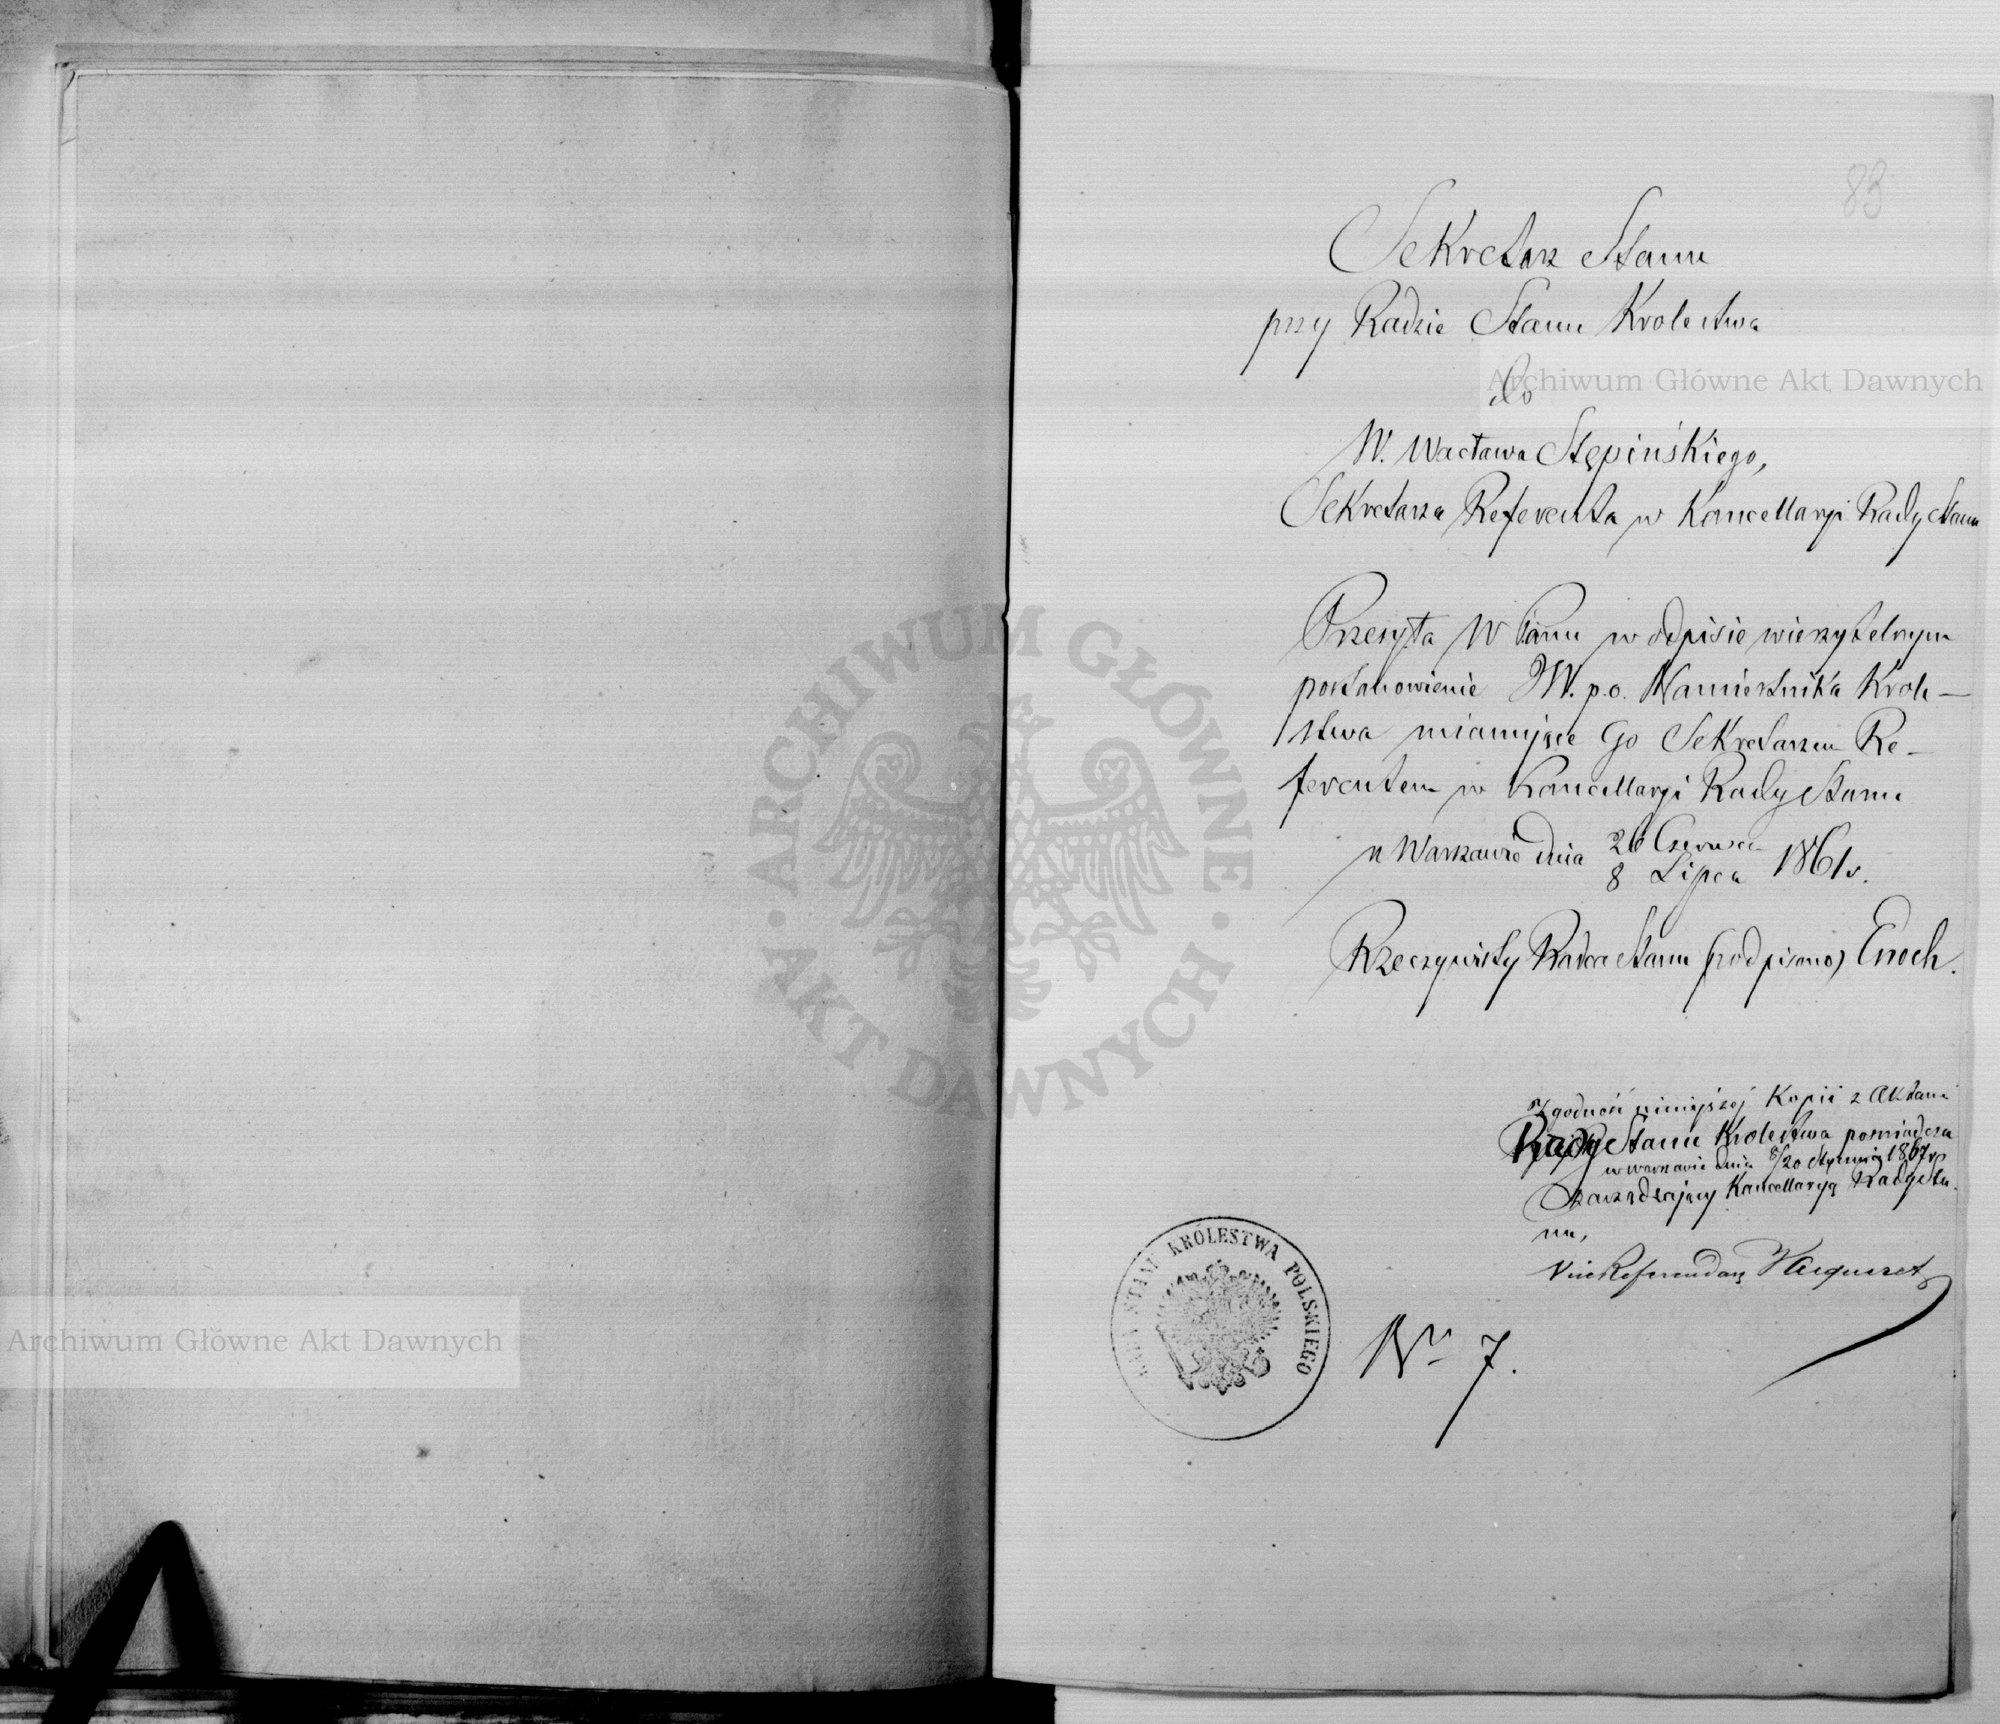 83
Sekretarz Stanu
przy Radzie Stanu Krolestwa
do
W. Wacława Stępińskiego,
Sekretarza Referenta w Kancellaryi Rady Stanu
Przesyła W Panu w odpisie wierzytelnym
postanowienie JW. p.o. Namiestnika Krole-
stwa mianujące Go Sekretarzem Re-
ferentem w Kancellaryi Rady Stanu
w Warszawie dnia 26 Czerwca
8 Lipca 1861 r.
Rzeczywisty Radca Stanu (podpisano) Enoch.
Zgodność niniejszej Kopii z Aktami
Rady Stanu Krolestwa poswiadcza
w Warszawie dnia 8/20 Stycznia 1867 r
Zarządzający Kancellaryą Rady Sta-
nu,
ViceReferendarz
RADA STANU KRÓLESTWA POLSKIEGO
Nr 7.
Archiwum Główne Akt Dawnych
Archiwum Główne Akt Dawnych
ARCHIWUM GŁÓWNE · AKT DAWNYCH ·